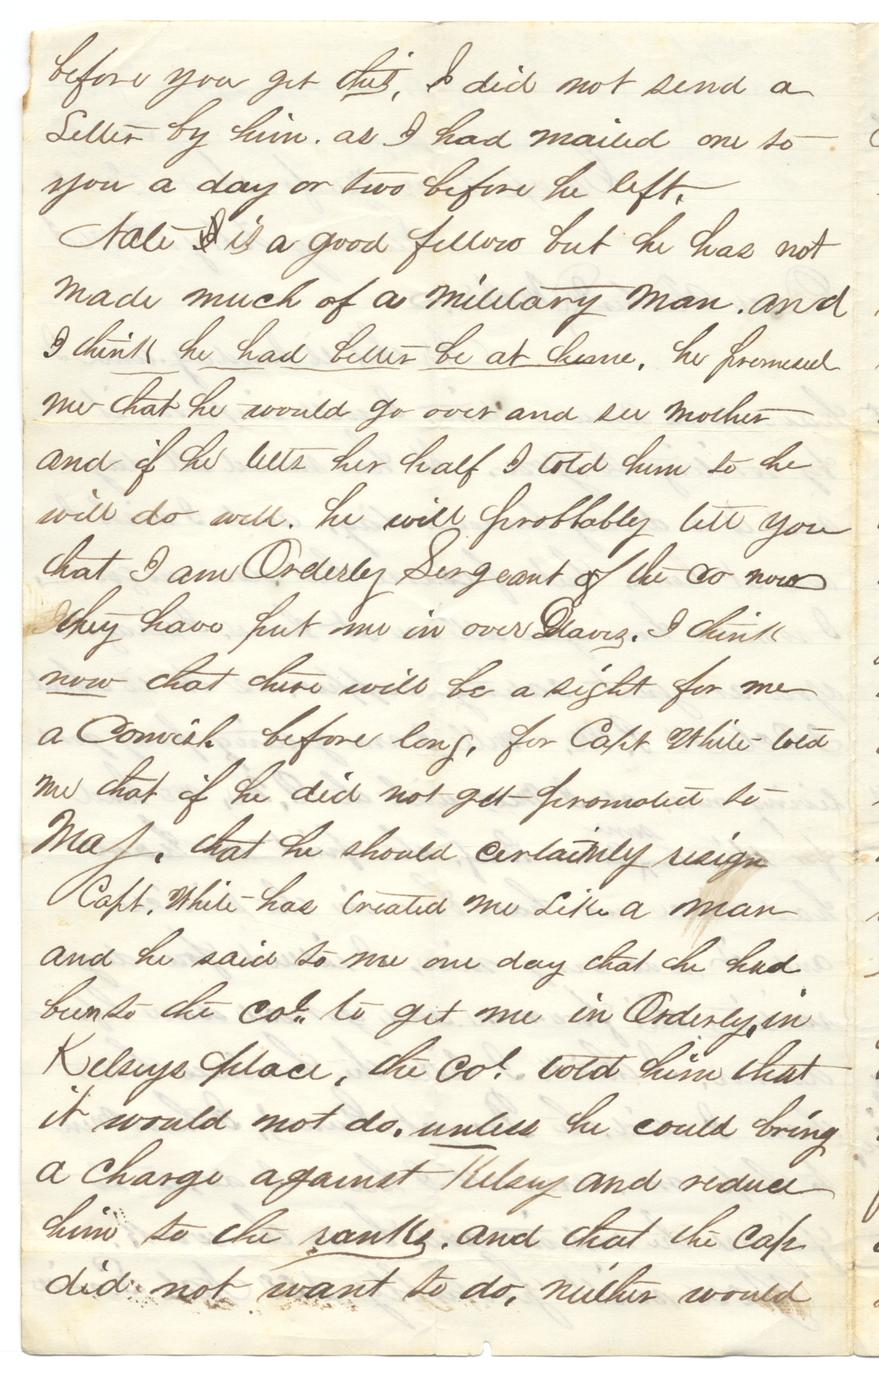 before you get this, I did not send a
Letter by him. as I had mailed one to
you a day or two before he left,
Nate is a good fellow but he has not
made much of a military man. and
I think he had better be at home, he promised
me that he would go over and see mother
and if he tells her half I told him to he
will do well. he will probbably tell you
that I am Orderly Sergeant of the co now
they have put me in over Davis. I think
now that there will be a sight for me
a Comish before long, for Capt White told
me that if he did not get promoted to
Maj, that he should certainly resign
Capt. White has treated me Like a man
and he said to me one day that he had
been to the Col. to get me in Orderly, in
Kelseys place, the Col. told him that
it would not do. unless he could bring
a charge against Kelsey and reduce
him to the ranks. and that the Cap
did not want to do, neither would